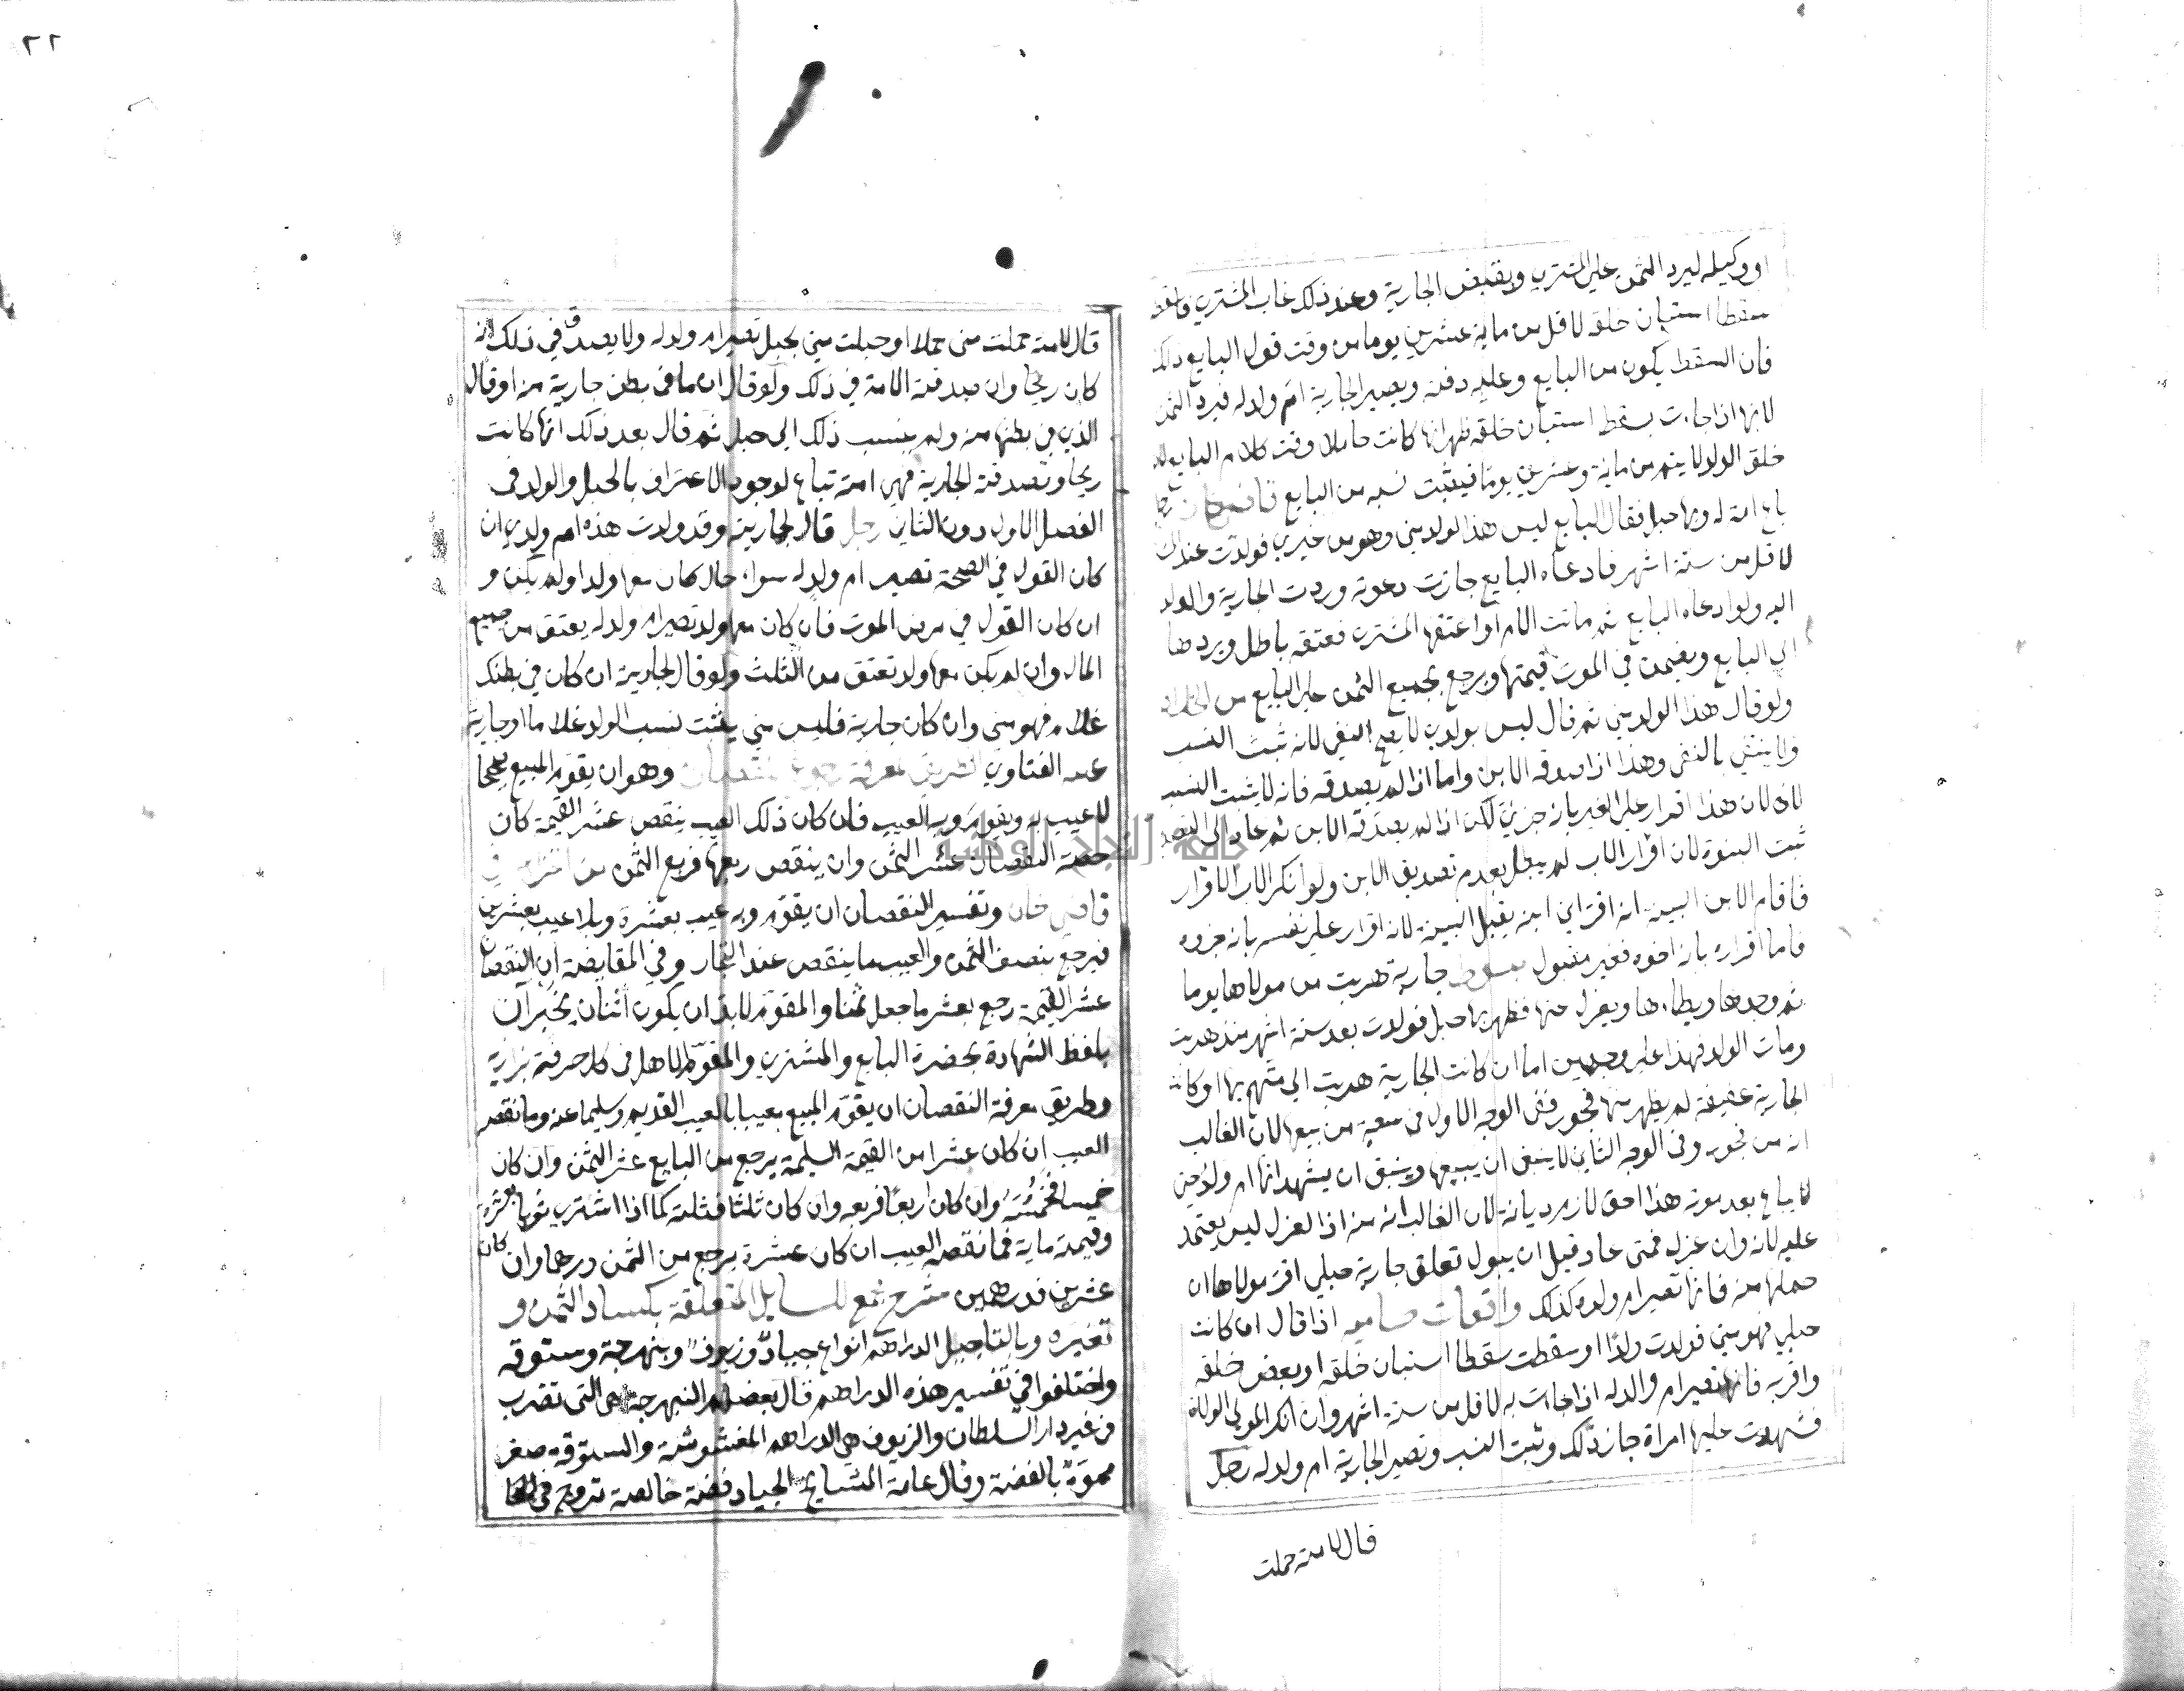 ٢٢
او وكيله ليرد الثمن على المشتري ويقبض الجارية وعند ذلك غاب المشتري
سقطا استبان خلقه لاقل من ماية عشرين يوما من وقت قول البايع ذلك
فان السقط يكون من البايع وعليه دفنه ويصير الجارية ام ولد له فيرد الثمن
لانها اذا جاءت بسقط استبان خلقه ظهر انها كانت حاملا وقت كلام البايع
خلق الولد لا يتم من ماية وعشرين يوما فيثبت نسبه من البايع قاضيخان
باع امة له وبها حبل فقال البايع ليس هذا الولد مني وهو من غيري فولدت عند
لاقل من ستة اشهر فادعاه البايع جازت دعوته وردت الجارية والولد
اليه ولو ادعاه البايع ثم ماتت الام او اعتقها المشتري فعتقه باطل ويردها
الى البايع ويضمن في الموت قيمتها ويرجع بجميع الثمن على البايع من
ولو قال هذا الولد مني ثم قال ليس بولدي لا يصح النفي لانه ثبت النسب
ولا ينتفي بالنفي وهذا اذا صدقه الابن واما اذا لم يصدقه فانه لا يثبت النسب
لان هذا اقرار على الغير بانه جزئي لكن اذا لم يصدقه الابن ثم عاد الى التصديق
ثبت البنوة لان اقرار الاب لم يبطل بعدم تصديق الابن ولو انكر الاب الاقرار
فاقام الابن البينة انه اقر اني ابنه يقبل البينة لانه اقرار على نفسه بانه جزوه
فاما اقراره بانه اخوه فغير مقبول مبسوط جارية هربت من مولاها يوما
ثم وجدها ويطاءها ويعزل عنها فظهر بها حبل فولدت بعد ستة اشهر منذ هربت
ومات الولد فهذا على وجهين اما ان كانت الجارية هربت الى متهم بها او كانت
الجارية عفيفة لم يظهر منها فجور ففي الوجه الاول في سعة من بيعها لان الغالب
انه من فجوره وفي الوجه الثاني لا ينبغي ان يبيعها وينبغي ان يشهد انها ام ولد حتى
لا يباع بعد موته هذا احق لازم ديانة لان الغالب انه منه اذا لعزل ليس يعتمد
عليه لانه وان عزل فمتى عاد قبل ان يبول تعلق جارية حبلي اقر مولاها ان
حملها منه فانها تصير ام ولده كذلك واقعات حساميه اذا قال ان كانت
حبلي فهو مني فولدت ولدا او سقطت سقطا استبان خلقه او بعض خلقه
واقر به فانها تصير ام والد له اذا جاءت به لاقل من ستة اشهر وان انكر المولى الولادة
فشهدت عليها امراة جاز ذلك وثبت النسب وتصير الجارية ام ولد له رجل
قال لامته حملت
قال لامته حملت مني حملا او حبلت مني بحبل تصير ام ولد له ولا يصدق في ذلك انه
كان ريحا وان صدقته الامة في ذلك ولو قال ان ما في بطن جارية منه او قال
الذي في بطنها منه ولم ينسب ذلك الى حبل ثم قال بعد ذلك انها كانت
ريحا وتصدقته الجارية فهي امة تباع لوجود الاعتراف بالحبل والولد في
الفصل الاول دون الثاني رجل قال لجارية وقد ولدت هذه ام ولدي ان
كان القول في الصحة تصير ام ولد له سواء حال كان معها ولد او لم يكن و
ان كان القول في مرض الموت فان كان معها ولد تصير ام ولد له يعتق من جميع
المال وان لم يكن معها ولد تعتق من الثلث ولو قال لجارية ان كان في بطنك
غلام فهو مني وان كان جارية فليس مني يثبت نسب الولد غلاما او جارية
الفتاوي الطريق لمعرفة وهو ان يقوم المبيع صحيحا
لا عيب به ويقوم وبه العيب فان كان ذلك العيب ينقص عشر القيمة كان
حصة النقصان عشر الثمن وان ينقص ربعها فربع الثمن
قاضي خان وتفسير النقصان ان يقوم وبه عيب بعشرة وبلا عيب بعشرين
فيرجع بنصف الثمن والعيب ما ينقص عند التجار وفي المقايضة ان النقصان
عشر القيمة رجع بعشر ما جعل ثمنا والمقوم لا بد ان يكون اثنان يخبران
بلفظ الشهادة بحضرة البايع والمشتري والمقوم الاهل في كل حرفة بزازية
وطريق معرفة النقصان ان يقوم المبيع معيبا بالعيب القديم وسليما عنه وما نقصه
العيب ان كان عشرا من القيمة السليمة يرجع من البايع عشر الثمن وان كان
خمسا فخمسه وان كان ربعا فربعه وان كان ثلثا فثلثه كما اذا اشترى ثوبا بعشرة
وقيمته ماية فما نقصه العيب ان كان عشرة يرجع من الثمن درهما وان كان
عشرين فدرهمين شرح مجمع المسايل المتعلقة بكساد الثمن و
تغيره وبالتاجيل الدراهم انواع جياد وزيوف وبنهرجة وستوقه
واختلفوا في تفسير هذه الدراهم قال بعضهم النبهرجة هي التي تضرب
في غير دار السلطان والزيوف هي الدراهم المغشوشة والستوقة صفر
مموّه بالفضة وقال عامة المشايخ الجياد فضة خالصة تروج في
جامعة النجاح الوطنية